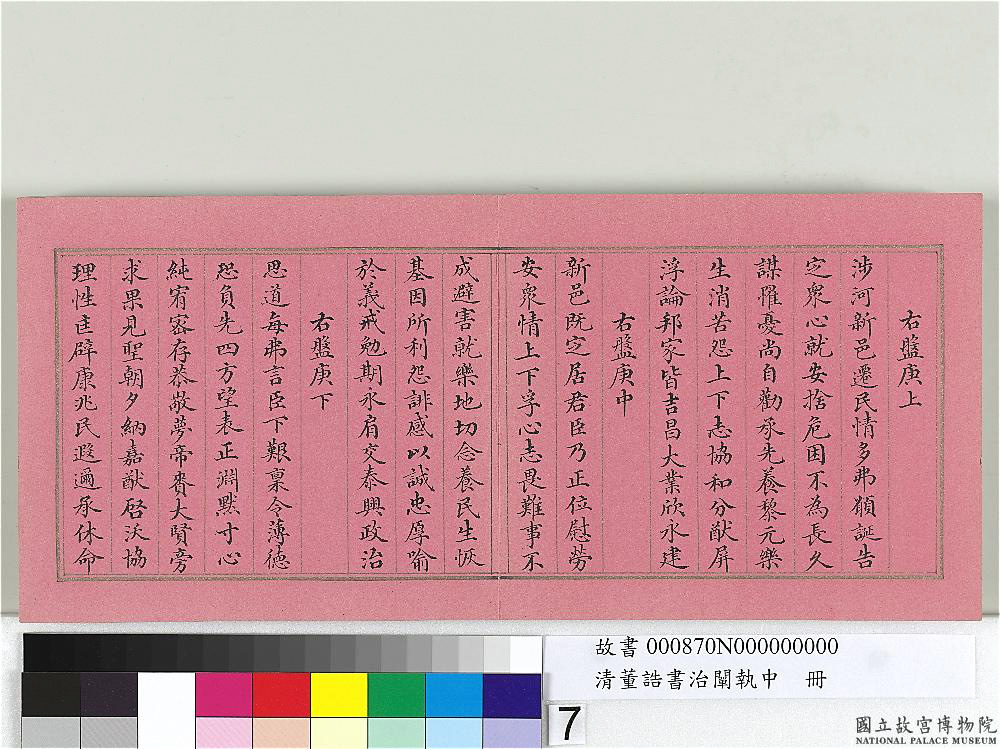 右盤庚上
涉河新邑遷民情多弗願誕告
定衆心就安捨危困不為長久
謀罹憂尚自勸承先養黎元樂
生消苦怨上下志協和分猷屏
浮論邦家皆吉昌大業欣永建
右盤庚中
新邑既定居君臣乃正位慰勞
安衆情上下孚心志畏難事不
成避害就樂地切念養民生恢
基因所利怨誹感以誠忠厚喻
於義戒勉期永肩交泰興政治
右盤庚下
思道每弗言臣下艱稟令薄德
恐負先四方望表正淵默寸心
純宥密存恭敬夢帝賚大賢旁
求果見聖朝夕納嘉猷啓沃協
理性匡辟康兆民遐邇承休命
故書 000870N000000000
清董誥書治闡執中 冊
7
國立故宮博物院
NATIONAL PALACE MUSEUM